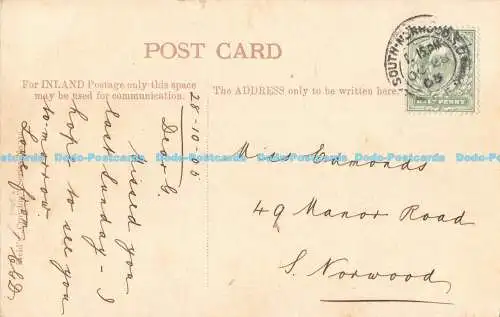 POST CARD
For INLAND Postage only this space
may be used for communication.
The ADDRESS only to be written here.
28-10-05
Dear G.
Missed you
last Sunday - I
hope to see you
to-morrow.
Love from
Miss Edmonds
49 Manor Road
S. Norwood
SOUTH-NORWOOD
05
HALFPENNY
Dodo-Postcards Dodo-Postcards Dodo-Postcards Dodo-Postcards Dodo-Postcards